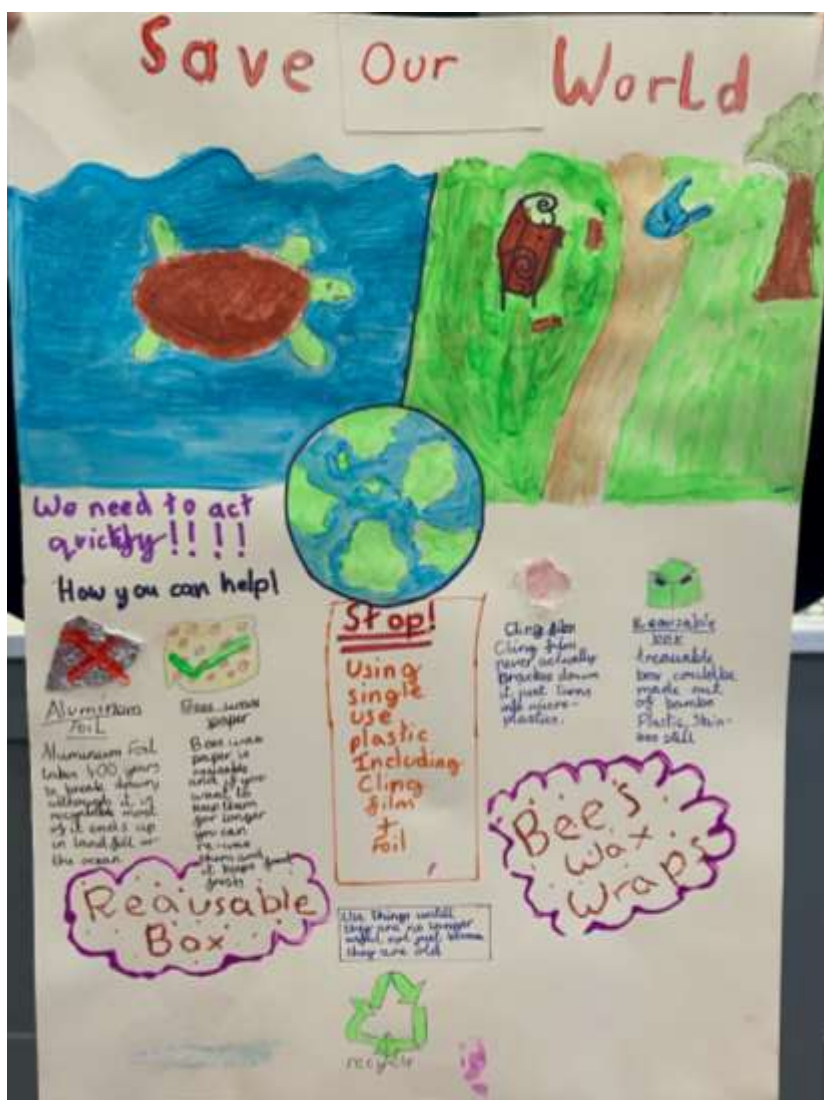 Save Our World
We need to act
quickly!!!!
How you can help!
Aluminum
Foil
Aluminum Foil
takes 400 years
to break down
although it is
recyclable most
of it ends up
in landfill or
the ocean
Bees wax
paper
Bees wax
paper is
reusable
and if you
want to
keep them
for longer
you can
re-wax
them and
it keeps food
fresh
Stop!
Using
single
use
plastic
Including
Cling
film
+
Foil
Cling film
Cling film
never actually
down
it just turns
into micro-
plastics.
box
box could be
made out
of
Plastic, Stain-
Reausable
Box
Bees
Wax
Wraps
Use things untill
they are no longer
useful not just because
they are old
recycle